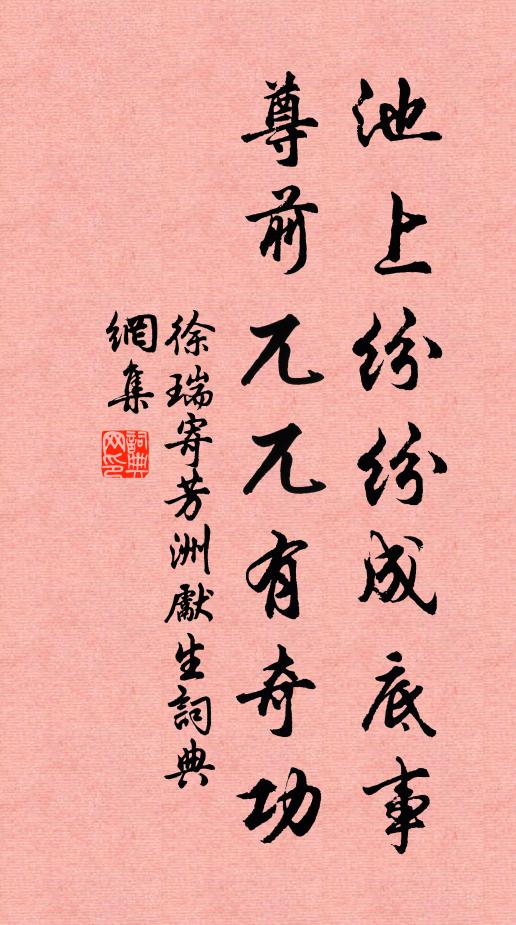 池上紛紛成底事
尊前兀兀有奇功
徐瑞寄芳洲獻生詞典
網集
詞典
網印